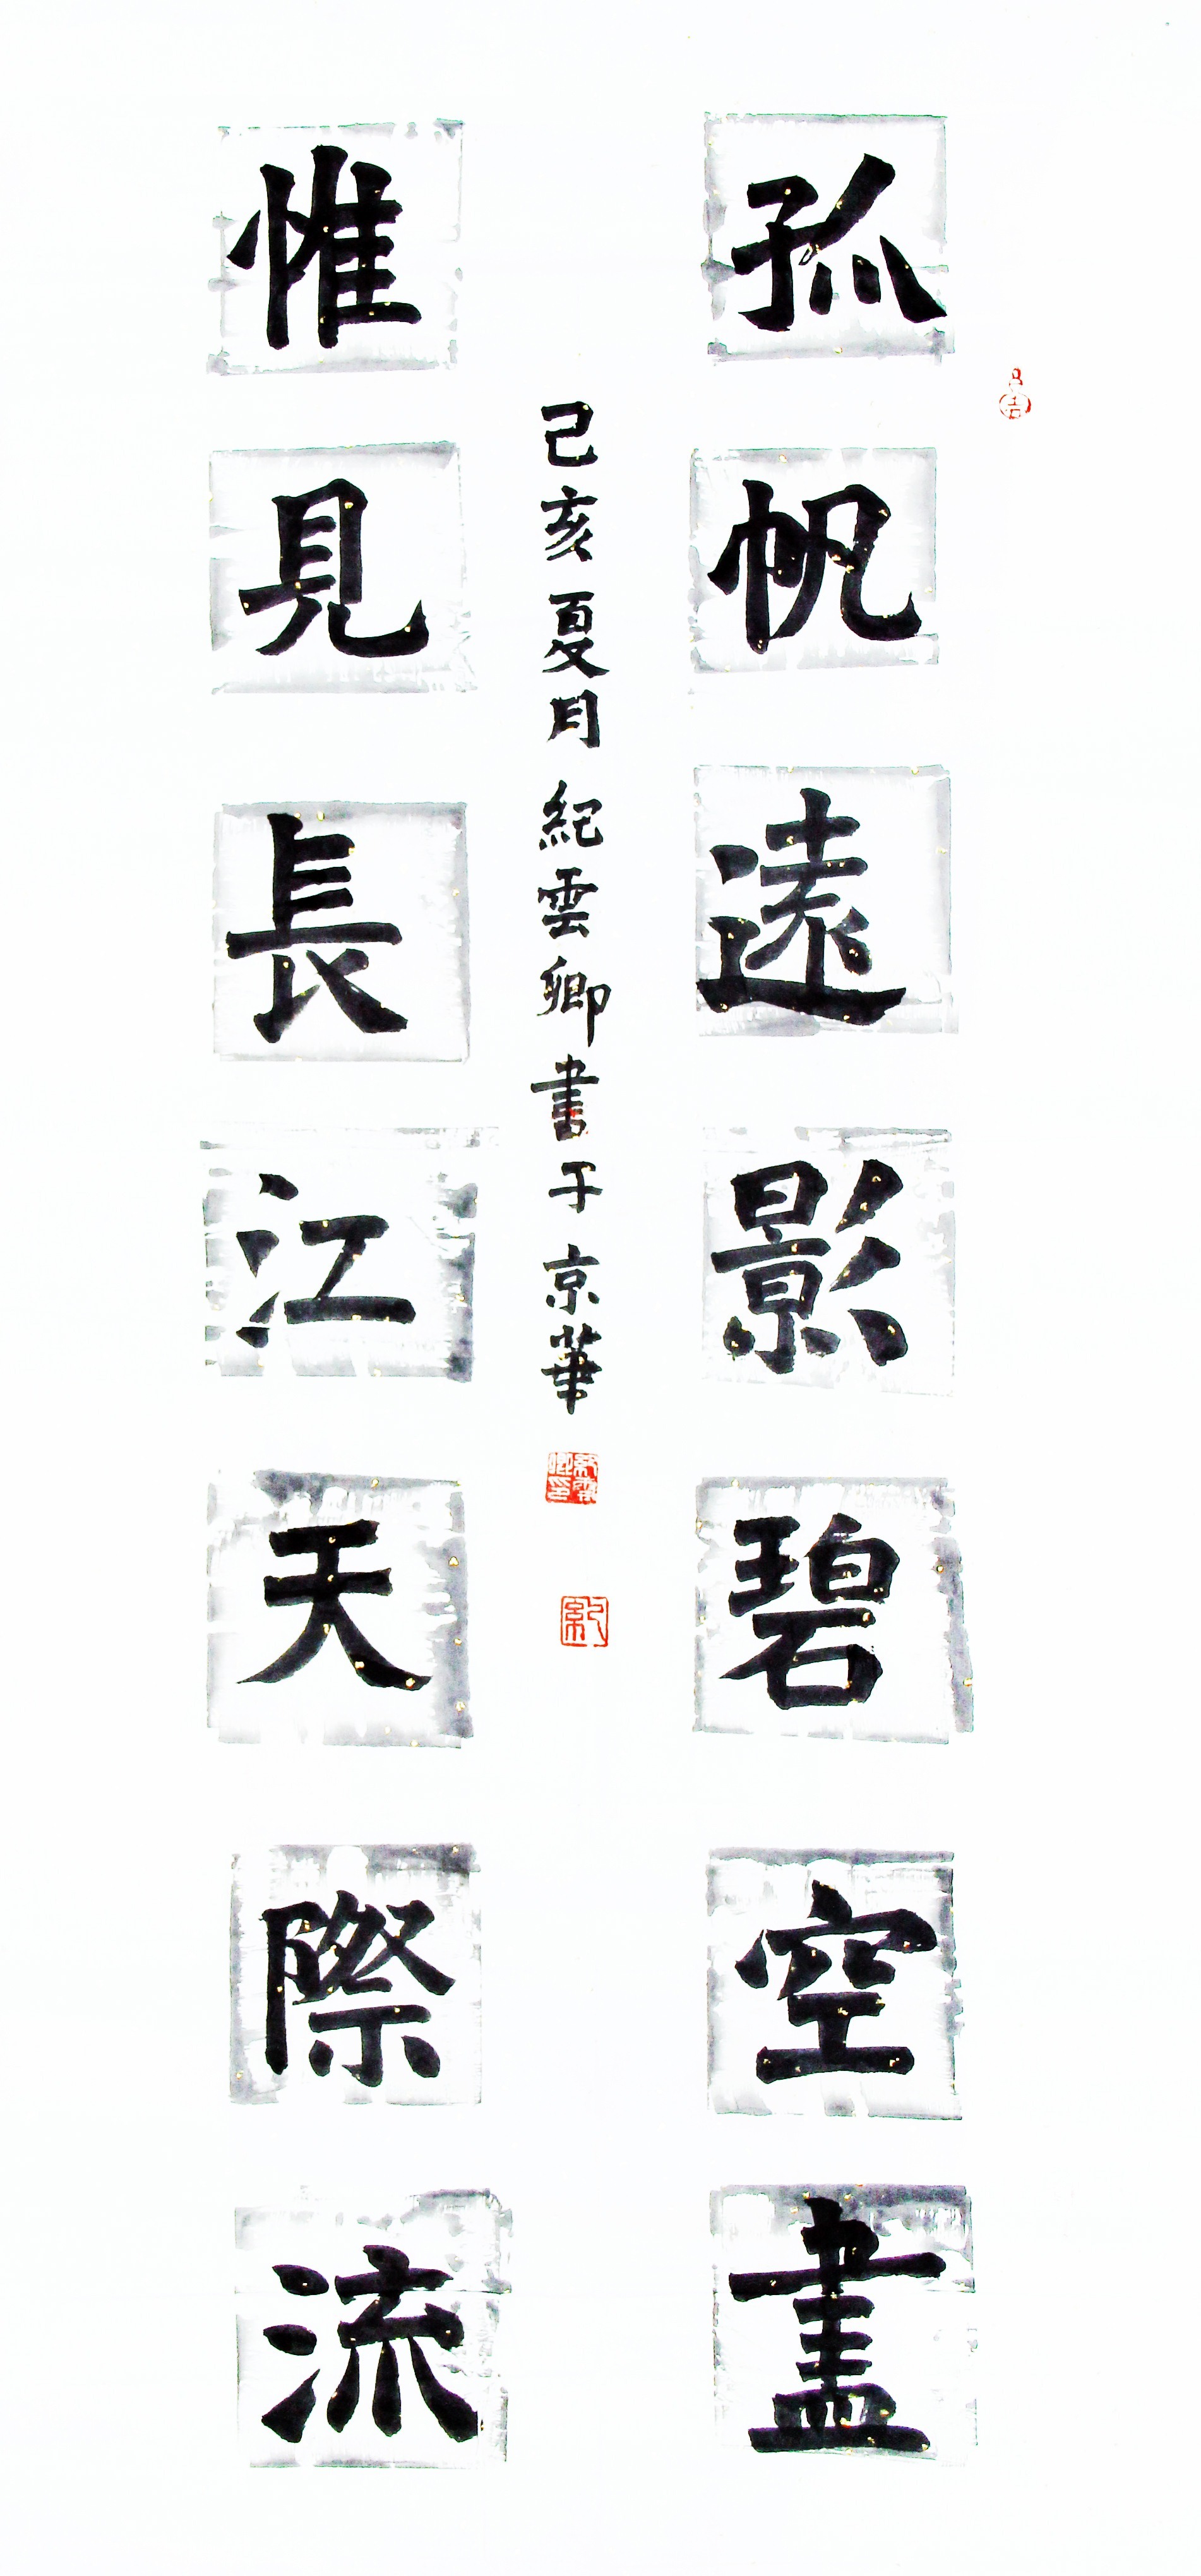 孤帆遠影碧空盡
惟見長江天際流
己亥夏月紀雲卿書于京華
紀